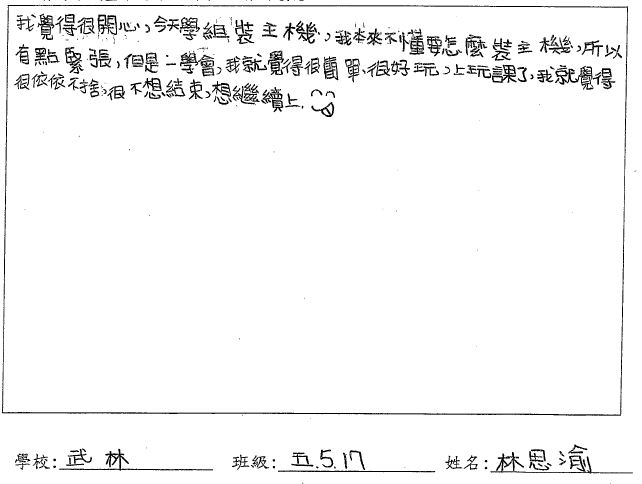 我覺得很開心，今天學組裝主機，我本來不懂要怎麼裝主機，所以
有點緊張，但是一學會，我就覺得很簡單、很好玩，上玩課了，我就覺得
很依依不捨，很不想結束，想繼續上.
學校：武林 班級：五.5.17 姓名：林思渝